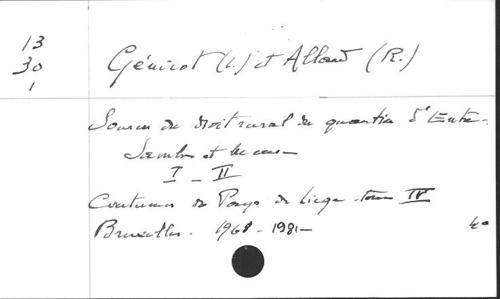 13
30
1
Génicot (L.) et Allard (R.)
Sources du droit rural du quartier d'Entre-
Sambre et Meuse
I - II
Coutumes du Pays de Liège tome IV
Bruxelles. 1968 - 1981
4°